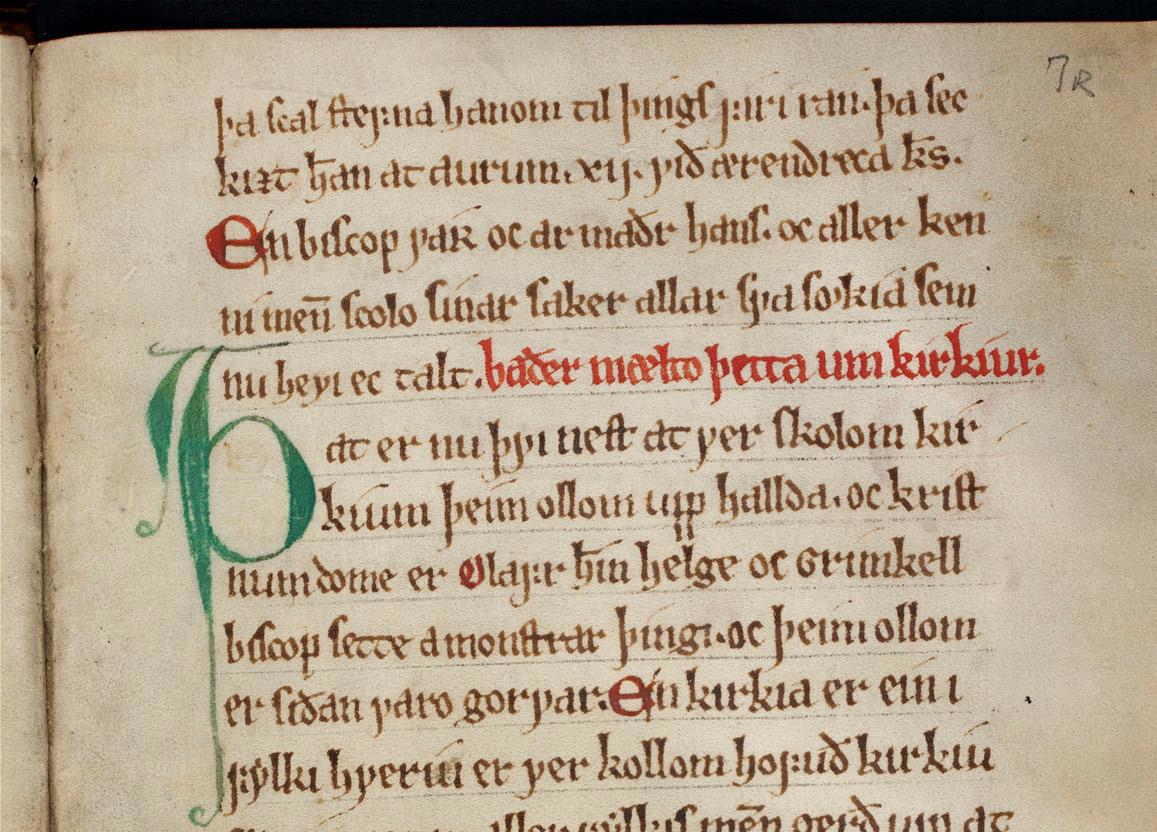 7R
þa scal stefna hanom til þings firi ran. þa sec
kizt h̄an at aurum .xij. við ærendreca k̄s.
En biscop var oc ar maðr hans. oc aller ken
ni men̄ scolo sinar saker allar sva sǫkia sem
nu hevi ec talt. baðer mælto þetta um kirkiur.
Þat er nu þvi nest at ver skolom kir
kium þeim ollom upp hallda. oc krist
num dome er Olafr h̄in helge oc Grimkell
biscop sette a monstrar þingi. oc þeim ollom
er siðan varo gorvar. En kirkia er ein i
fylki hveriu er ver kollom hofuð kirkiu
aller fylkis men̄ gerð up at